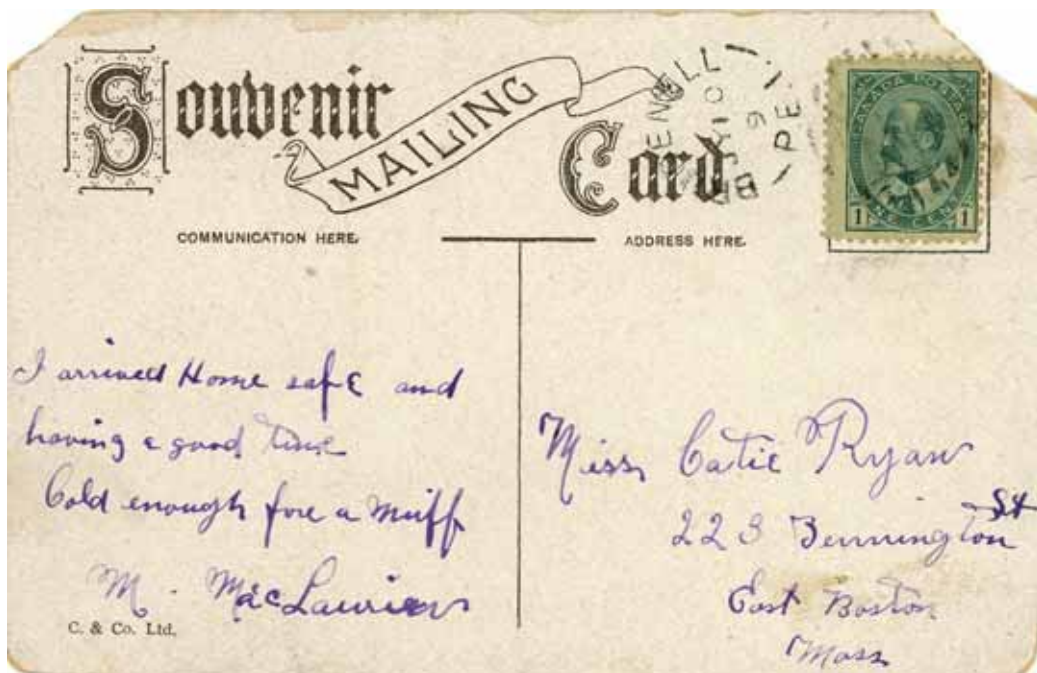 Souvenir
MAILING
Card
COMMUNICATION HERE.
ADDRESS HERE.
CANADA POSTAGE
1 ONE CENT 1
I arrived Home safe and
having a good time
Cold enough fore a Muff
M. MacLaurien
C. & Co. Ltd.
Miss Catie Ryan
223 Bennington St
East Boston
Mass